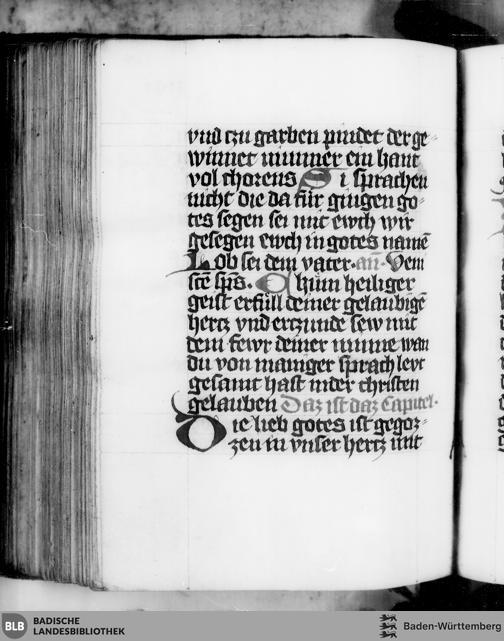 vnd czu garben pindet der ge⸗
winnet nimmer ein hant
vol chorens Si sprachen
nicht die da für gingen go⸗
tes segen sei mit ewch wir
gesegen ewch in gotes namē
Lob sei dem vater. añ. Vem
scē sp̄s. Chüm heiliger
geist erfüll deiner gelaubigē
hertz vnd erczunde sew mit
dem fewr deiner minne wan
du von maniger sprach levt
gesamt hast in der christen
gelauben Daz ist daz Capitel.
Die lieb gotes ist gegoz⸗
zen in vnser hertz mit
BLB BADISCHE
LANDESBIBLIOTHEK
Baden-Württemberg